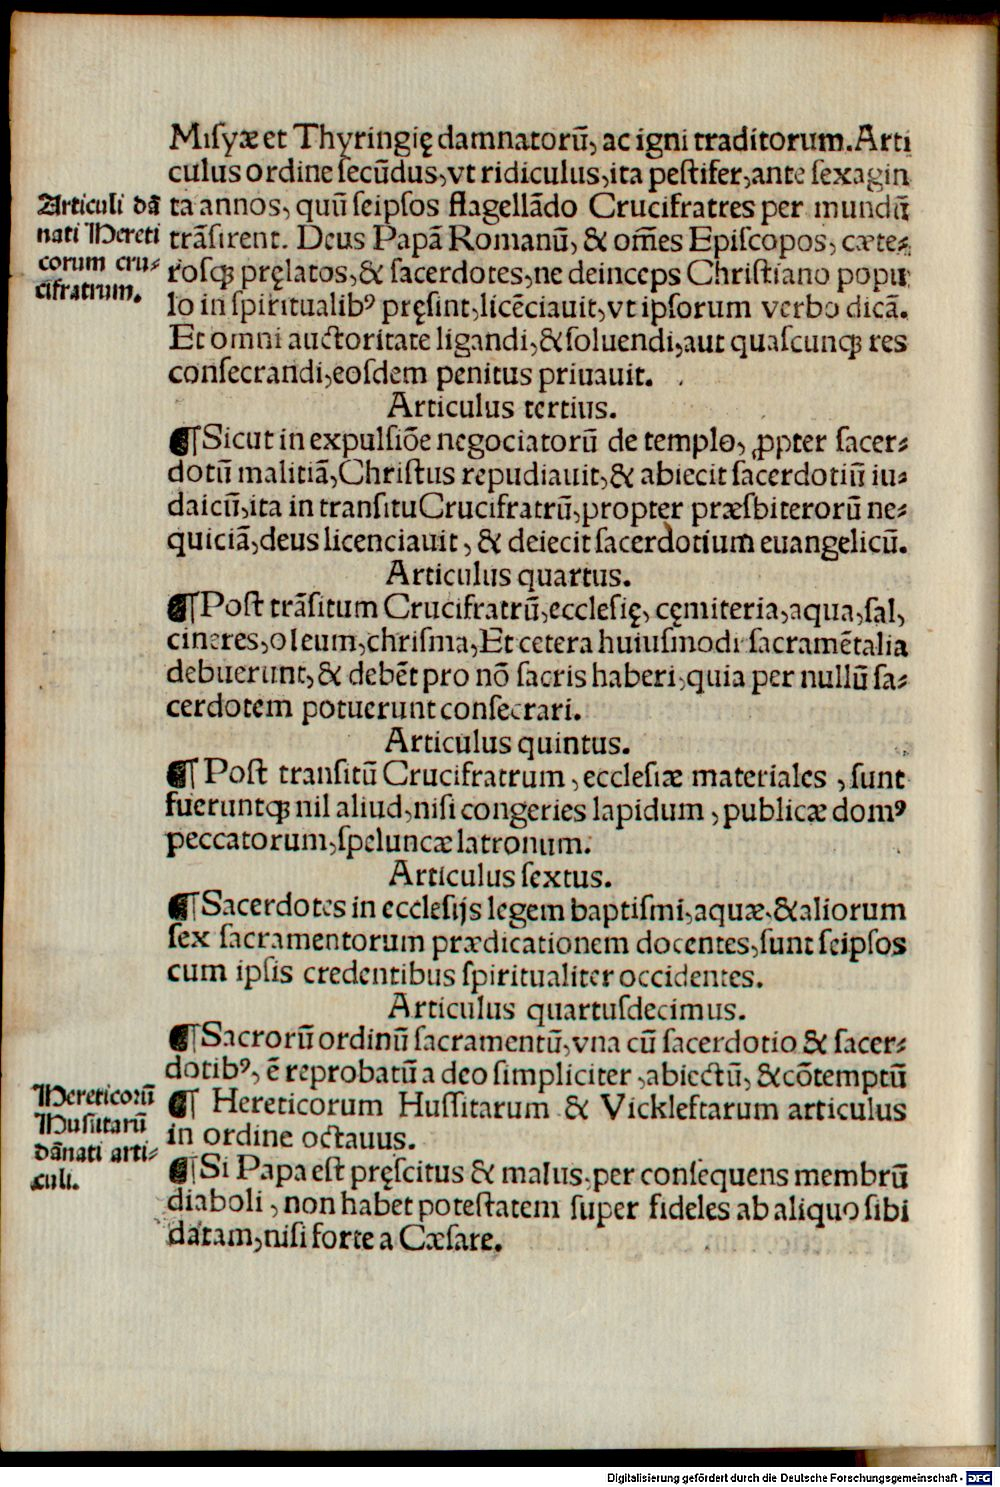 Misyæ et Thyringię damnatorū, ac igni traditorum. Arti
culus ordine secūdus, vt ridiculus, ita pestifer, ante sexagin
ta annos, quū seipsos flagellādo Crucifratres per mundū
trāsirent. Deus Papā Romanū, & om̄es Episcopos, cæte⸗
rosqꝫ pręlatos, & sacerdotes, ne deinceps Christiano popu
lo in spiritualibꝰ pręsint, licēciauit, vt ipsorum verbo dicā.
Et omni auctoritate ligandi, & soluendi, aut quascunqꝫ res
consecrandi, eosdem penitus priuauit.
Articuli dā
nati Hereti
corum cru⸗
cifratrum.
Articulus tertius.
¶ Sicut in expulsiōe negociatorū de templo, ꝓpter sacer⸗
dotū malitiā, Christus repudiauit, & abiecit sacerdotiū iu⸗
daicū, ita in transitu Crucifratrū, propter præsbiterorū ne⸗
quiciā, deus licenciauit, & deiecit sacerdotium euangelicū.
Articulus quartus.
¶ Post trāsitum Crucifratrū, ecclesię, cęmiteria, aqua, sal,
cineres, oleum, chrisma, Et cetera huiusmodi sacramētalia
debuerunt, & debēt pro nō sacris haberi, quia per nullū sa⸗
cerdotem potuerunt consecrari.
Articulus quintus.
¶ Post transitū Crucifratrum, ecclesiæ materiales, sunt
fueruntqꝫ nil aliud, nisi congeries lapidum, publicæ domꝰ
peccatorum, speluncæ latronum.
Articulus sextus.
¶ Sacerdotes in ecclesijs legem baptismi, aquæ, & aliorum
sex sacramentorum prædicationem docentes, sunt seipsos
cum ipsis credentibus spiritualiter occidentes.
Articulus quartusdecimus.
¶ Sacrorū ordinū sacramentū, vna cū sacerdotio & sacer⸗
dotibꝰ, ē reprobatū a deo simpliciter, abiectū, & cōtemptū
¶ Hereticorum Hussitarum & Vickleftarum articulus
in ordine octauus.
Hereticorū
Husitarū
dānati arti⸗
culi.
¶ Si Papa est pręscitus & malus, per consequens membrū
diaboli, non habet potestatem super fideles ab aliquo sibi
datam, nisi forte a Cæsare.
Digitalisierung gefördert durch die Deutsche Forschungsgemeinschaft - DFG